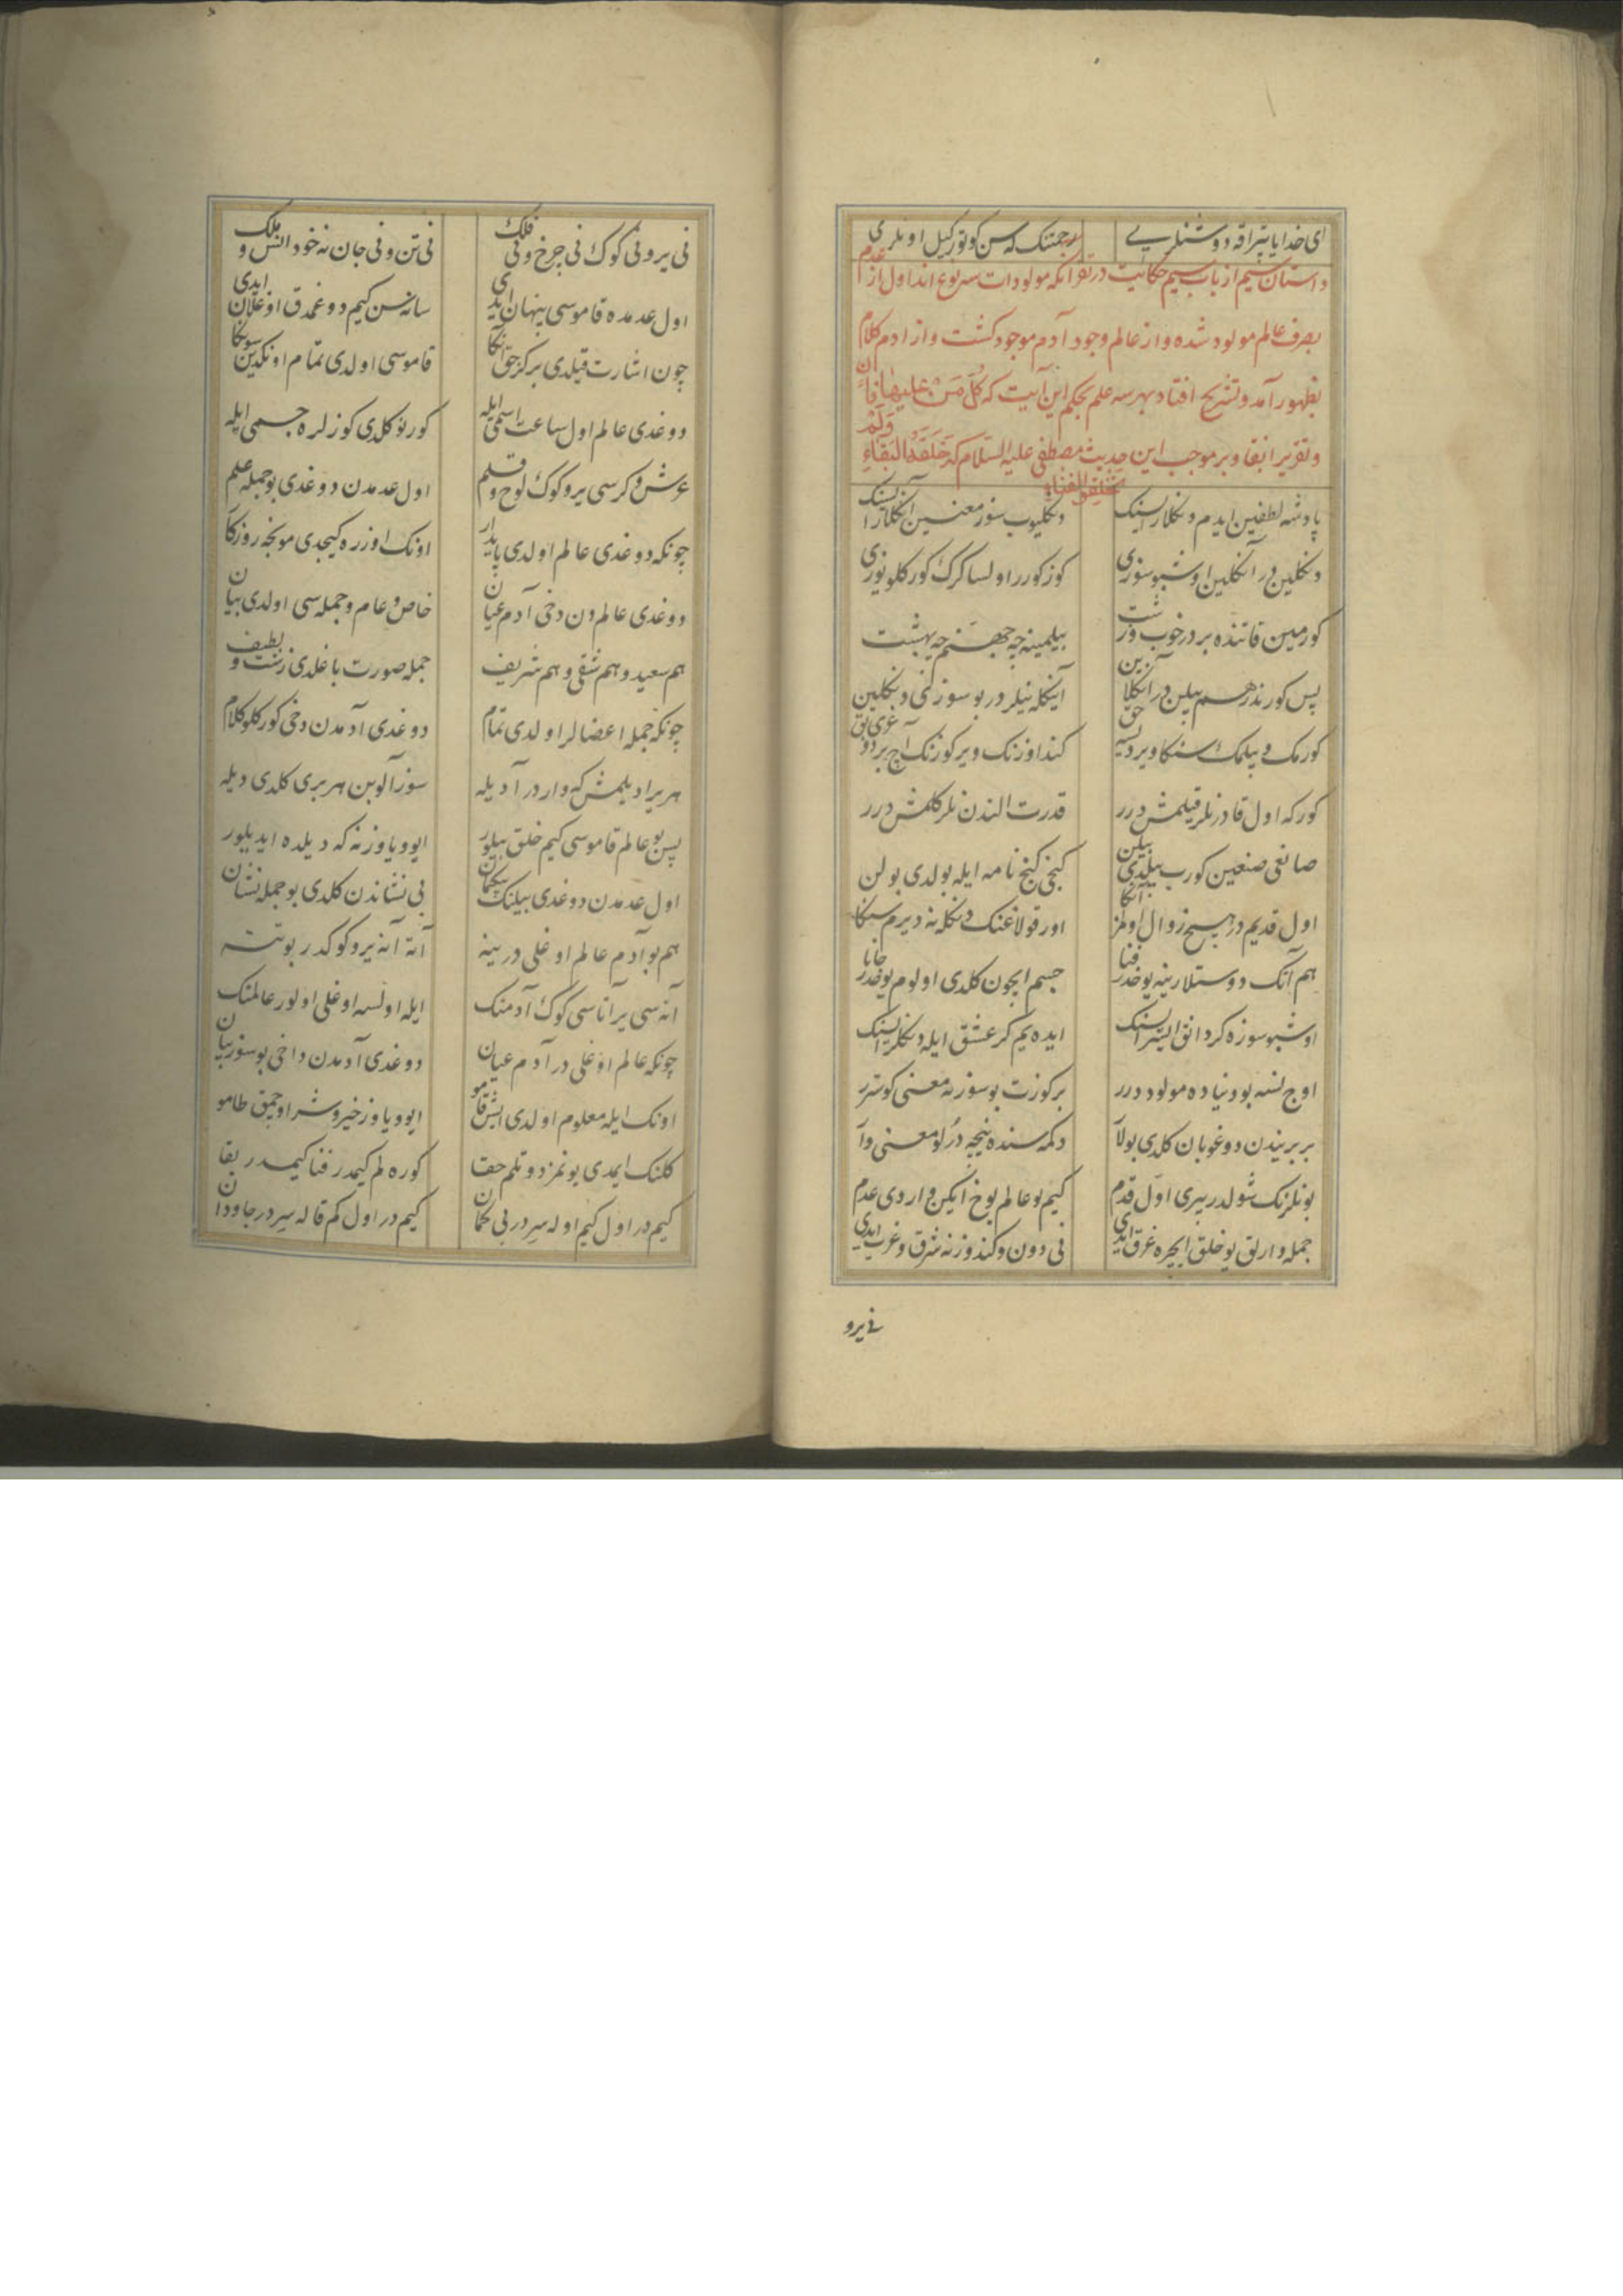 ای خدایا یتراقه دوستنلریی رحمتنک که سن کوتورکیل اونلری
داستان سیم از باب سیم حکایت در تقر انکه مولودات سه نوع اند اول از عدم
بصرف عالم مولود شده و از عالم وجود آدم موجود کشت و از ادم کلام
بظهور آمد و تشریح افتاد بهر سه علم بحکم این آیت که کُلُّ مَنْ علیها فان
و تقریر ابقا و بر موجب این حدیث مصطفی علیه السلام که خَلَقَهُ البَقاءِ وَلَمْ
یخلق للفناء
پادشه لطفین ایدم دنکلارسنک دنکلیوب سوز معنسین انکلارسنک
دنکلین در آنکلین اوشبو سوزی کوز کورر اولسا کرک کورکلو یوزی
کورمین قاتنده بر در خوب و زشت بیلمینه چه جهنم چه بهشت
پس کورندر هم بیلن در آنکلاین آینکله نیلر در بو سوز کنی دنکلین
کورمک و بیلمک سنکا ویردیسه حق کنداوزنک ویر کوزنک آچ بر دوغری بق
کورکه اول قادر نلر قیلمش درر قدرت الندن نلر کلمش درر
صانعی صنعین کورب بیلدی بیلن کنجی کنج نامه ایله بولدی بولن
اول قدیم در هیچ زوال اولمز آنکا اور قولاغنک دنکله نه دیرم سنکا
هم آنک دوستلارینه یوخدر فنا جسم ایچون کلدی اولوم یوخدر جانا
اوشبو سوزه کر دانق ایسترسنک ایده یم کر عشق ایله دنکلرسنک
اوچ نسنه بو دنیاده مولود درر بر کوزت بو سوز نه معنی کوستر
بر بریندن دوغوبان کلدی بولآ دکمه سنده نیجه دُرلو معنی وآ
بونلرنک شولدر بیری اوّل قدم کیم بو عالم یوخ ایکن واردی عدم
جمله وارلق یوخلق ایچره غرق ایدی نی دون و کندوز نه شرق و غرب ایدی
نی یرو
نی یر و نی کوک نی چرخ و نی فلک نی تن و نی جان نه خود انس و ملک
اول عدمده قاموسی پنهان ایدی سانه سن کیم دوغمدق اوغلان ایدی
چون اشارت قیلدی بر کز حق آنکا قاموسی اولدی تمّام اونکدین سونکا
دوغدی عالم اول ساعت اسمی ایله کورنو کلدی کوزلره جسمی ایله
عرش و کرسی یر و کوک لوح و قلم اول عدمدن دوغدی بو جمله علم
چونکه دوغدی عالم اولدی پایدار اونک اوزره کیچدی مونجه روزکا
دوغدی عالم دن دخی آدم عیان خاص و عام و جمله سی اولدی بیان
هم سعید و هم شقی و هم شریف جمله صورت باغلدی زشت و لطیف
چونکه جمله اعضالر اولدی تمّام دوغدی آدمدن دخی کورکلو کلام
هر بر ادیلمش که واردر آدیله سوز آلوبن هر بری کلدی دیله
پس بو عالم قاموسی کیم خلق بیلور ایو و یاوز نه که دیلده ایدیلور
اول عدمدن دوغدی بیلنک بیکمان بی نشاندن کلدی بو جمله نشان
هم بو آدم عالم اوغلی در ینه آته آنه یر و کوکدر بو تنه
آنه سی یر آتاسی کوک آدمنک ایله اولسه اوغلی اولور عالمنک
چونکه عالم اوغلی در آدم عیان دوغدی آدمدن داخی بو سوز بیان
اونک ایله معلوم اولدی ایش قامو ایو و یاوز خیر و شر اوچمق طامو
کلنک ایمدی یونمز دوتلم حقا کوره لم کیمدر فنا کیمدر بقا
کیم در اول کیم اوله سیر در بی کمان کیم در اول کم قاله سیر در جاودان